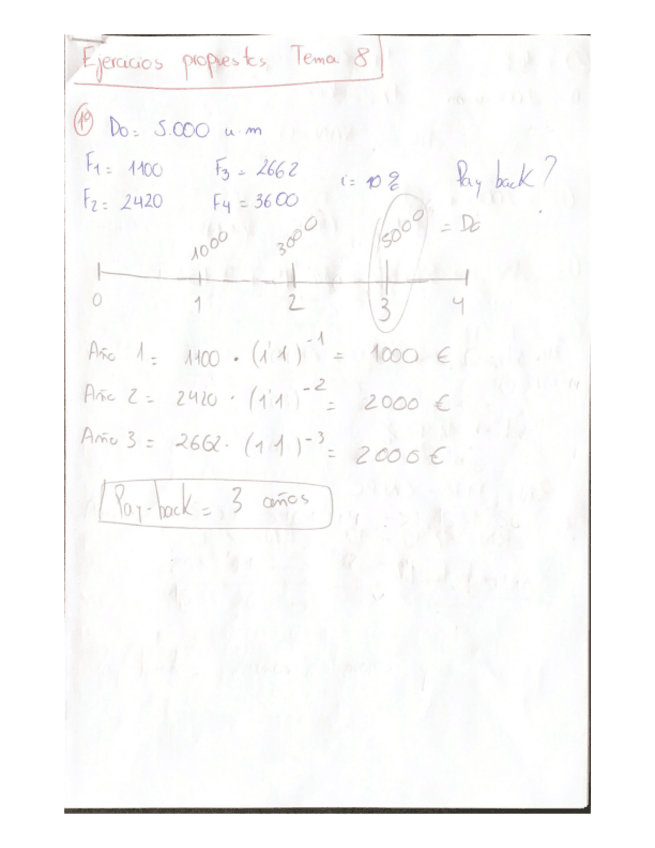 Ejercicios propuestos Tema 8
1º Do = 5.000 u.m
F1 = 1100 F3 = 2662 i = 10% Pay back?
F2 = 2420 F4 = 3600
1000 3000 5000 = Do
0 1 2 3 4
Año 1 = 1100 · (1'1)^-1 = 1000 €
Año 2 = 2420 · (1'1)^-2 = 2000 €
Año 3 = 2662 · (1'1)^-3 = 2000 €
Pay-back = 3 años